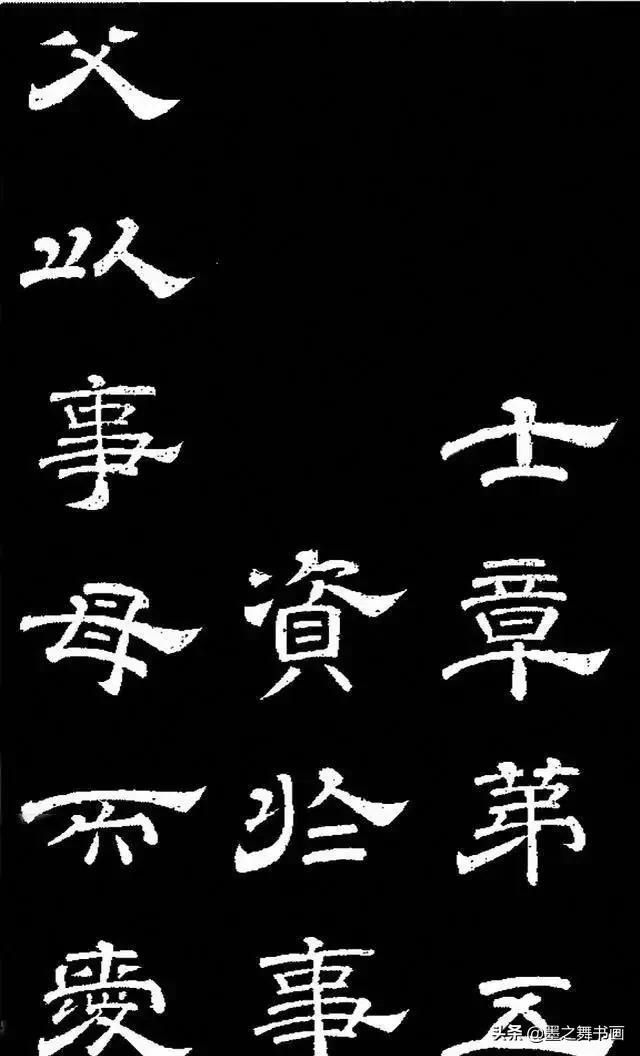 士章第五
資於事
父以事母而愛
头条 @墨之舞书画